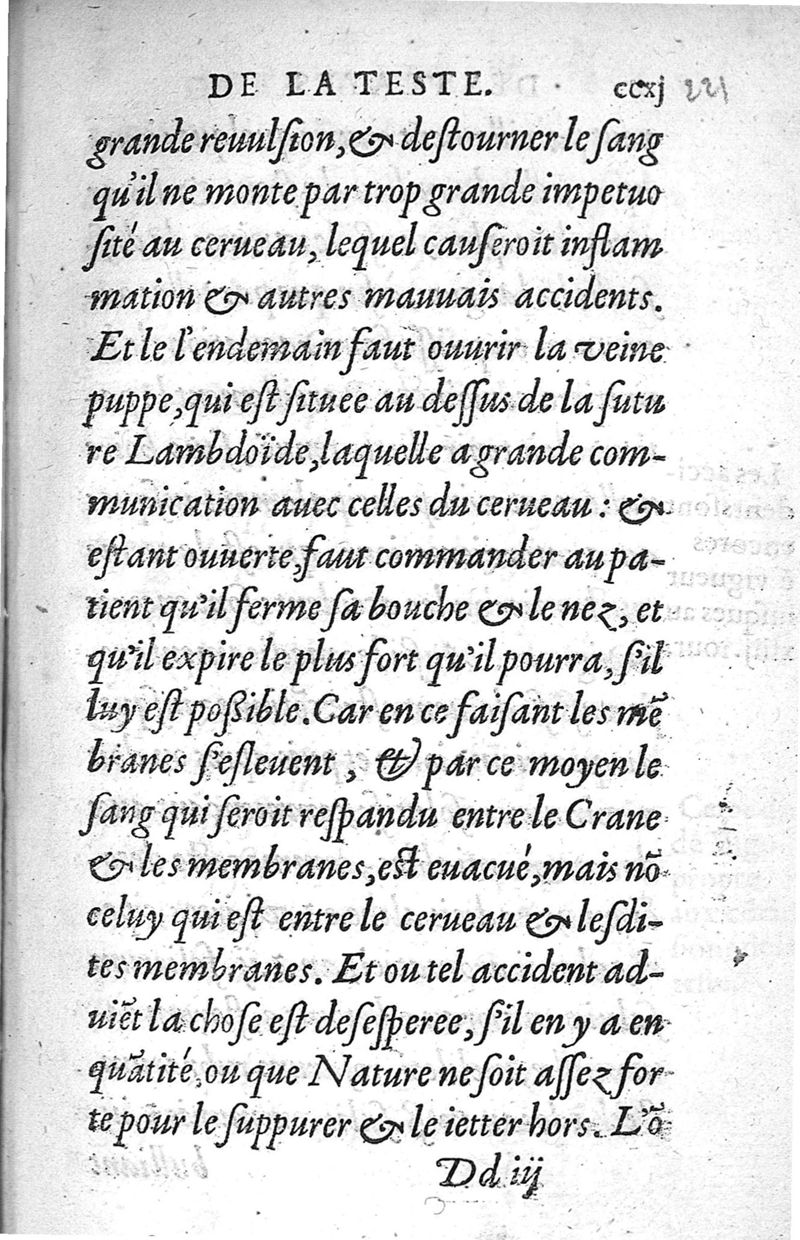 DE LA TESTE. ccxj 221
grande reuulſion, & deſtourner le ſang
qu'il ne monte par trop grande impetuo
ſité au cerueau, lequel cauſeroit inflam
mation & autres mauuais accidents.
Et le l'endemain faut ouurir la veine
puppe, qui eſt ſituee au deſſus de la ſutu
re Lambdoïde, laquelle a grande com-
munication auec celles du cerueau : &
eſtant ouuerte, faut commander au pa-
tient qu'il ferme ſa bouche & le nez, et
qu'il expire le plus fort qu'il pourra, ſ'il
luy eſt poßible. Car en ce faiſant les mē
branes ſ'eſleuent, & par ce moyen le
ſang qui ſeroit reſpandu entre le Crane
& les membranes, eſt euacué, mais nō
celuy qui eſt entre le cerueau & leſdi-
tes membranes. Et ou tel accident ad-
uiēt la choſe eſt deſeſperee, ſ'il en y a en
quātité, ou que Nature ne ſoit aſſez for
te pour le ſuppurer & le ietter hors. L'ō
Dd iij